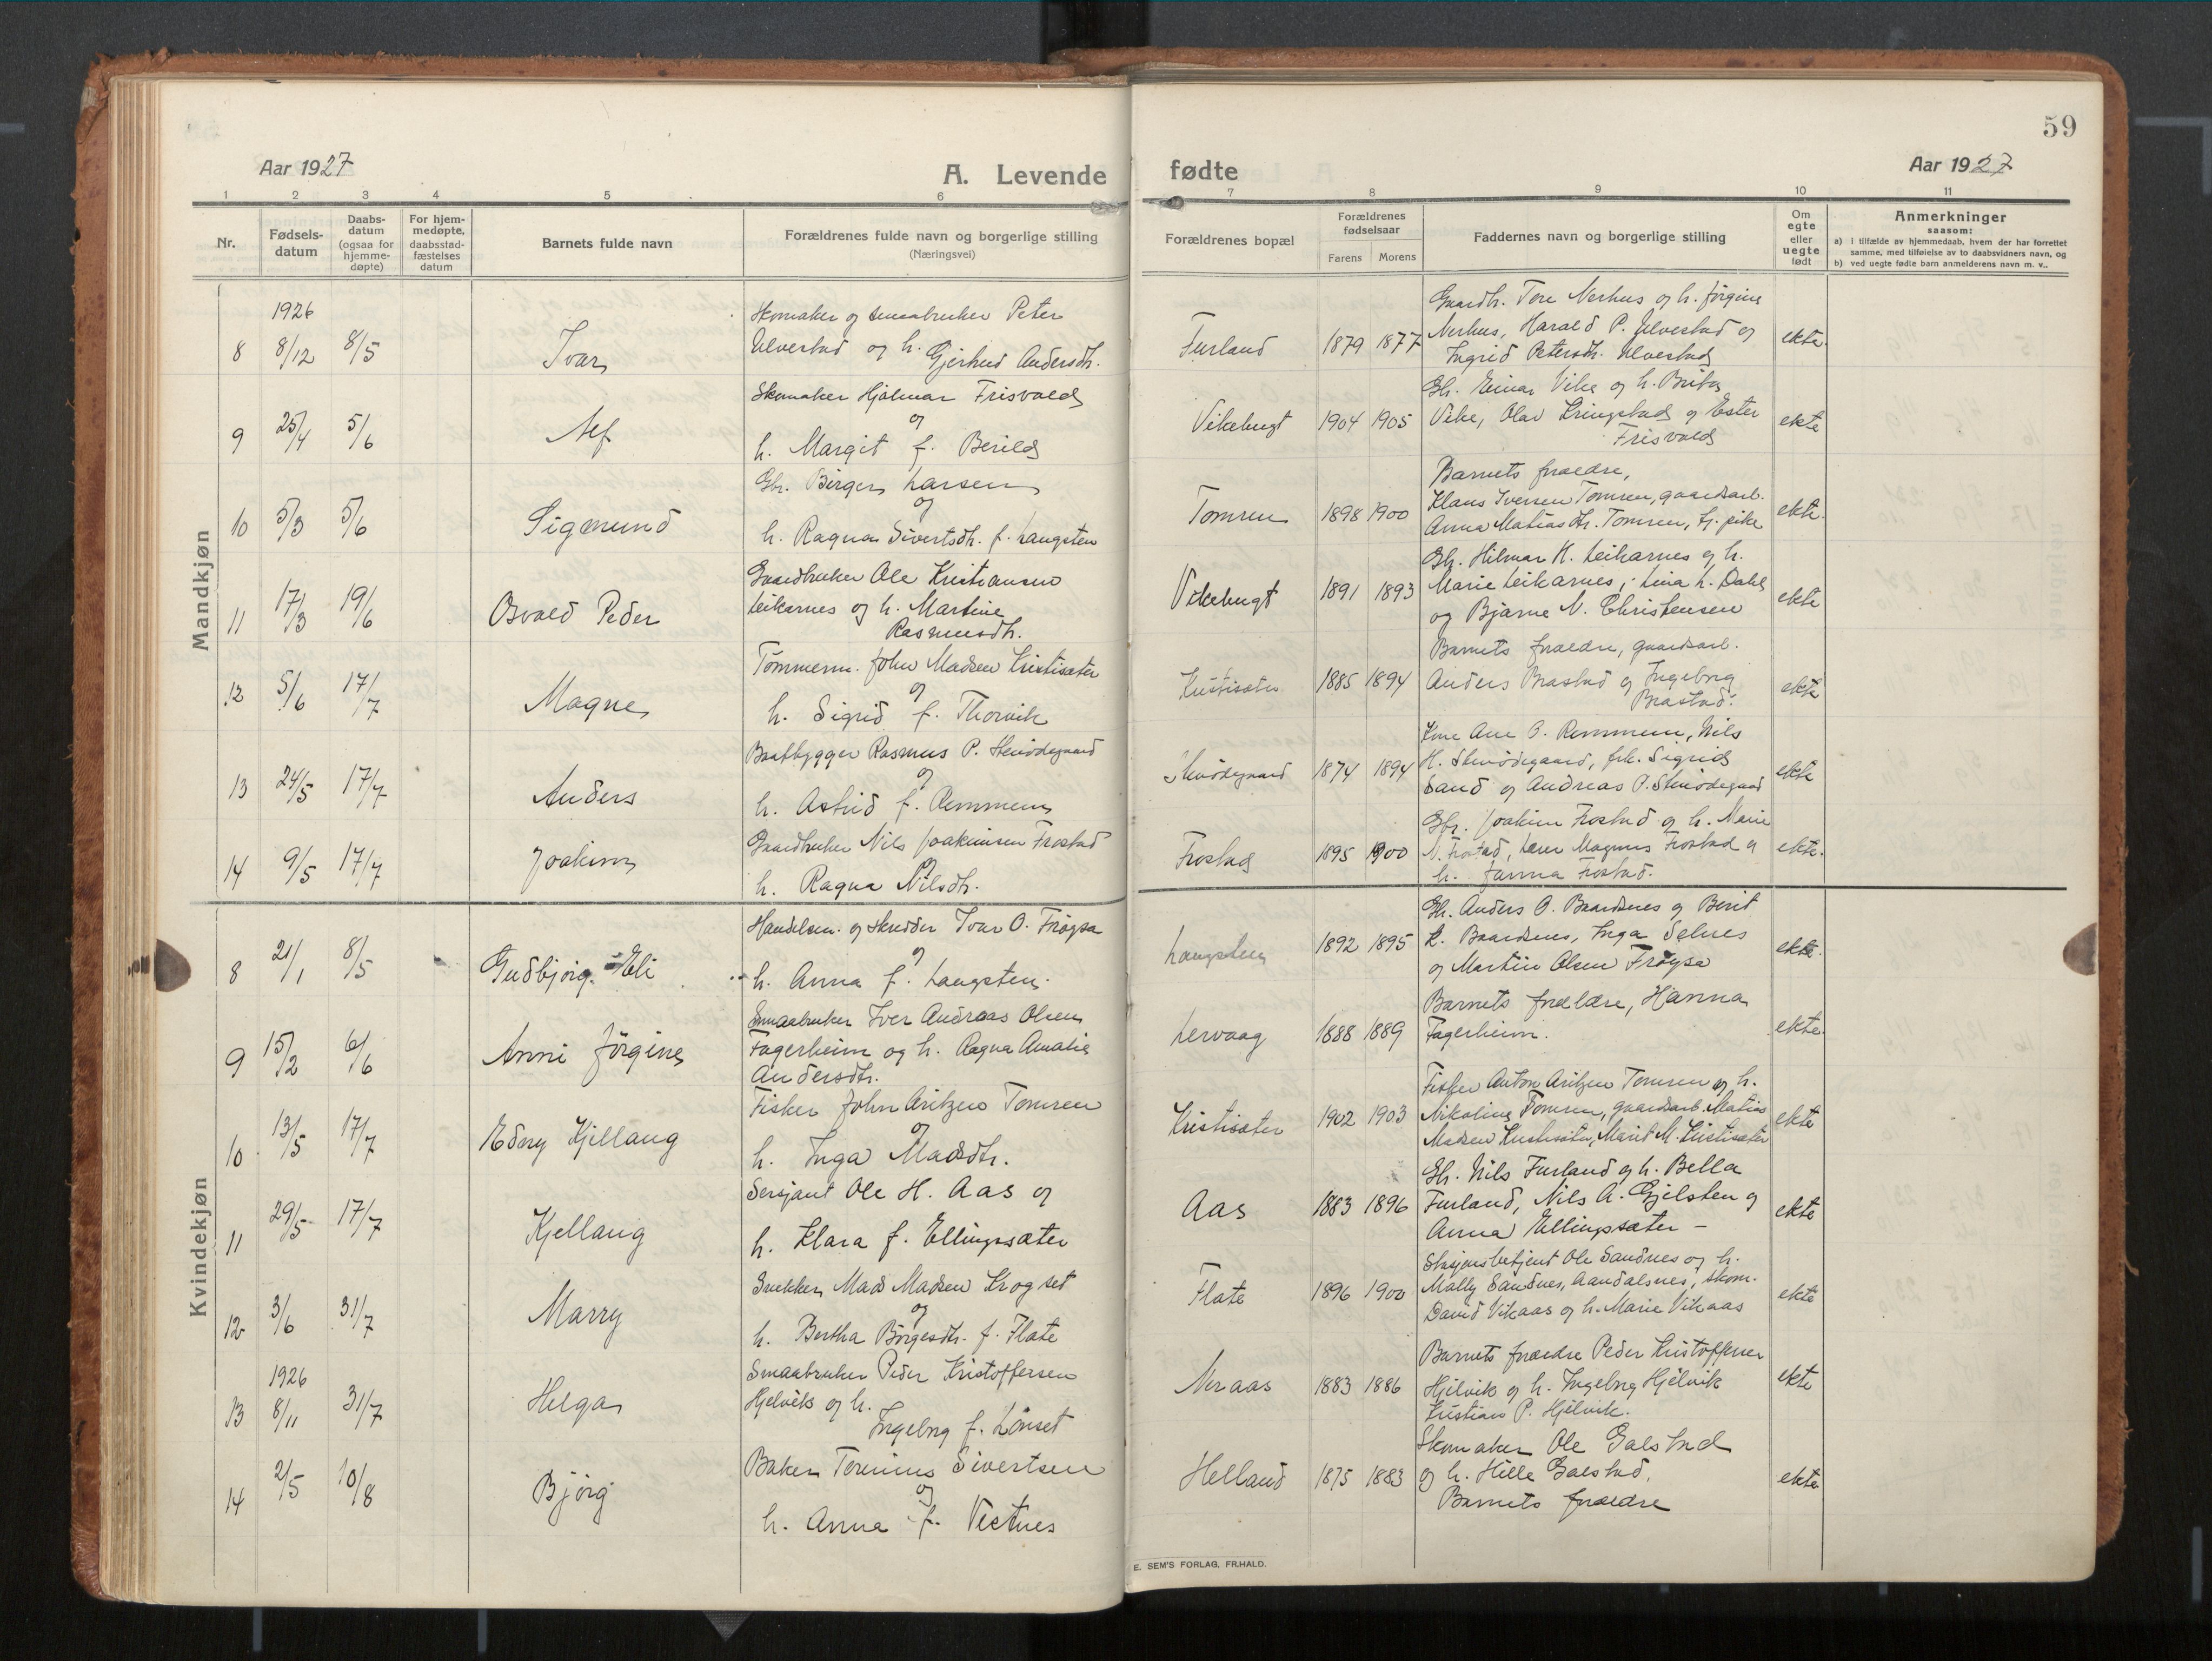 59
Aar 1927
A. Levende fødte
Aar 1927
1 2 3 4 5 6 7 8 9 10 11
Nr.
Fødsels-
datum
Daabs-
datum
(ogsaa for
hjemme-
døpte)
For hjem-
medøpte,
daabsstad-
fæstelses
datum
Barnets fulde navn
Forældrenes fulde navn og borgerlige stilling
(Næringsvei)
Forældrenes bopæl
Forældrenes
fødselsaar
Farens Morens
Faddernes navn og borgerlige stilling
Om
egte
eller
uegte
født
Anmerkninger
saasom:
a) i tilfælde av hjemmedaab, hvem der har forrettet
samme, med tilføielse av to daabsvidners navn, og
b) ved uegte fødte barn anmelderens navn m. v..
Mandkjøn
1926
8 8/12 8/5 Ivar
Skomaker og smaabruker Peter
Ulvestad og h. Gjertrud Andersdtr.
Furland 1879 1877
Gaardbr. Tore Nerhus og h. Jørgine
Nerhus, Harald P. Ulvestad og
Ingrid Petersdtr. Ulvestad
ekte.
9 25/4 5/6 Alf
Skomaker Hjalmar Frisvold
og
h. Margit f. Berild
Vikebugt 1904 1905
Gbr. Einar Vike og h. Brita
Vike, Olav Kringstad og Ester
Frisvold
ekte
10 5/3 5/6 Sigmund
Gbr. Birger Larsen
og
h. Ragna Sivertsdtr. f. Langsten
Tomren 1898 1900
Barnets foreldre,
Klaus Iversen Tomren, gaardsarb.
Anna Matiasdtr. Tomren, tj. pike
ekte.
11 17/3 19/6 Osvald Peder
Gaardbruker Ole Kristiansen
Leikarnes og h. Martine
Rasmusdtr.
Vikebugt 1891 1893
Gbr. Hilmar K. Leikarnes og h.
Marie Leikarnes, Lina L. Dahl
og Bjarne N. Christensen
ekte
12 5/6 17/7 Magne
Tømmerm. John Madsen Kristisæter
og
h. Sigrid f. Thorvik
Kristisæter 1885 1894
Barnets foreldre, gaardsarb.
Anders Brastad og Ingeborg
Brastad.
ekte
13 24/5 17/7 Anders
Baatbygger Rasmus P. Stenødegaard
og
h. Astrid f. Remmem
Stenødegaard 1874 1894
Kone Ane O. Remmem, Nils
H. Stenødegaard, frk. Sigrid
Sand og Andreas P. Stenødegaard
ekte
14 9/5 17/7 Joakim
Gaardbruker Nils Joakimsen Frostad
og
h. Ragna Nilsdtr.
Frostad 1895 1900
Gbr. Joakim Frostad og h. Marie
N. Frostad, Lærer Magnus Frostad og
h. Janna Frostad.
ekte.
Kvindekjøn
8 21/1 8/5 Gudbjørg Eli
Handelsm. og skrædder Ivar O. Frøysa
og
h. Anna f. Langsten.
Langsten 1892 1895
Gbr. Anders O. Baardsnes og Berit
K. Baardsnes, Inga Selnes
og Martin Olsen Frøysa
ekte.
9 15/2 6/6 Anni Jørgine
Smaabruker Iver Andreas Olsen
Fagerheim og h. Ragna Amalie
Andersdtr.
Lervaag 1888 1889
Barnets foreldre, Hanna
Fagerheim.
ekte
10 13/5 17/7 Edny Kjellaug
Fisker John Aritzen Tomren
og
h. Inga Madsdtr.
Kristisæter 1902 1903
Fisker Anton Aritzen Tomren og h.
Nikoline Tomren, gaardsarb. Matias
Madsen Kristisæter, Marit M. Kristisæter
ekte
11 29/5 17/7 Kjellaug
Sersjant Ole H. Aas og
h. Klara f. Ellingsæter
Aas 1883 1896
Gbr. Nils Furland og h. Bella
Furland, Nils A. Gjelsten og
Anna Ellingsæter –
ekte
12 3/6 31/7 Marry
Snekker Mads Madsen Krogset
og
h. Bertha Børgesdtr. f. Flate
Flate 1896 1900
Stasjonsbetjent Ole Sandnes og h.
Mally Sandnes, Aandalsnes, skom.
David Vikaas og h. Marie Vikaas
ekte
1926
13 8/11 31/7 Helga
Smaabruker Peder Kristoffersen
Hjelvik og h.
Ingeborg f. Lønset
Neraas 1883 1886
Barnets foreldre Peder Kristoffersen
Hjelvik og h. Ingeborg Hjelvik
Kristian P. Hjelvik.
ekte
14 2/5 10/8 Bjørg
Baker Sivertsen
og
h. Anna f. Vestnes
Helland 1875 1883
Skomaker Ole Galstad
og h. Hille Galstad,
Barnets foreldre
ekte
E. SEM'S FORLAG, FR.HALD.